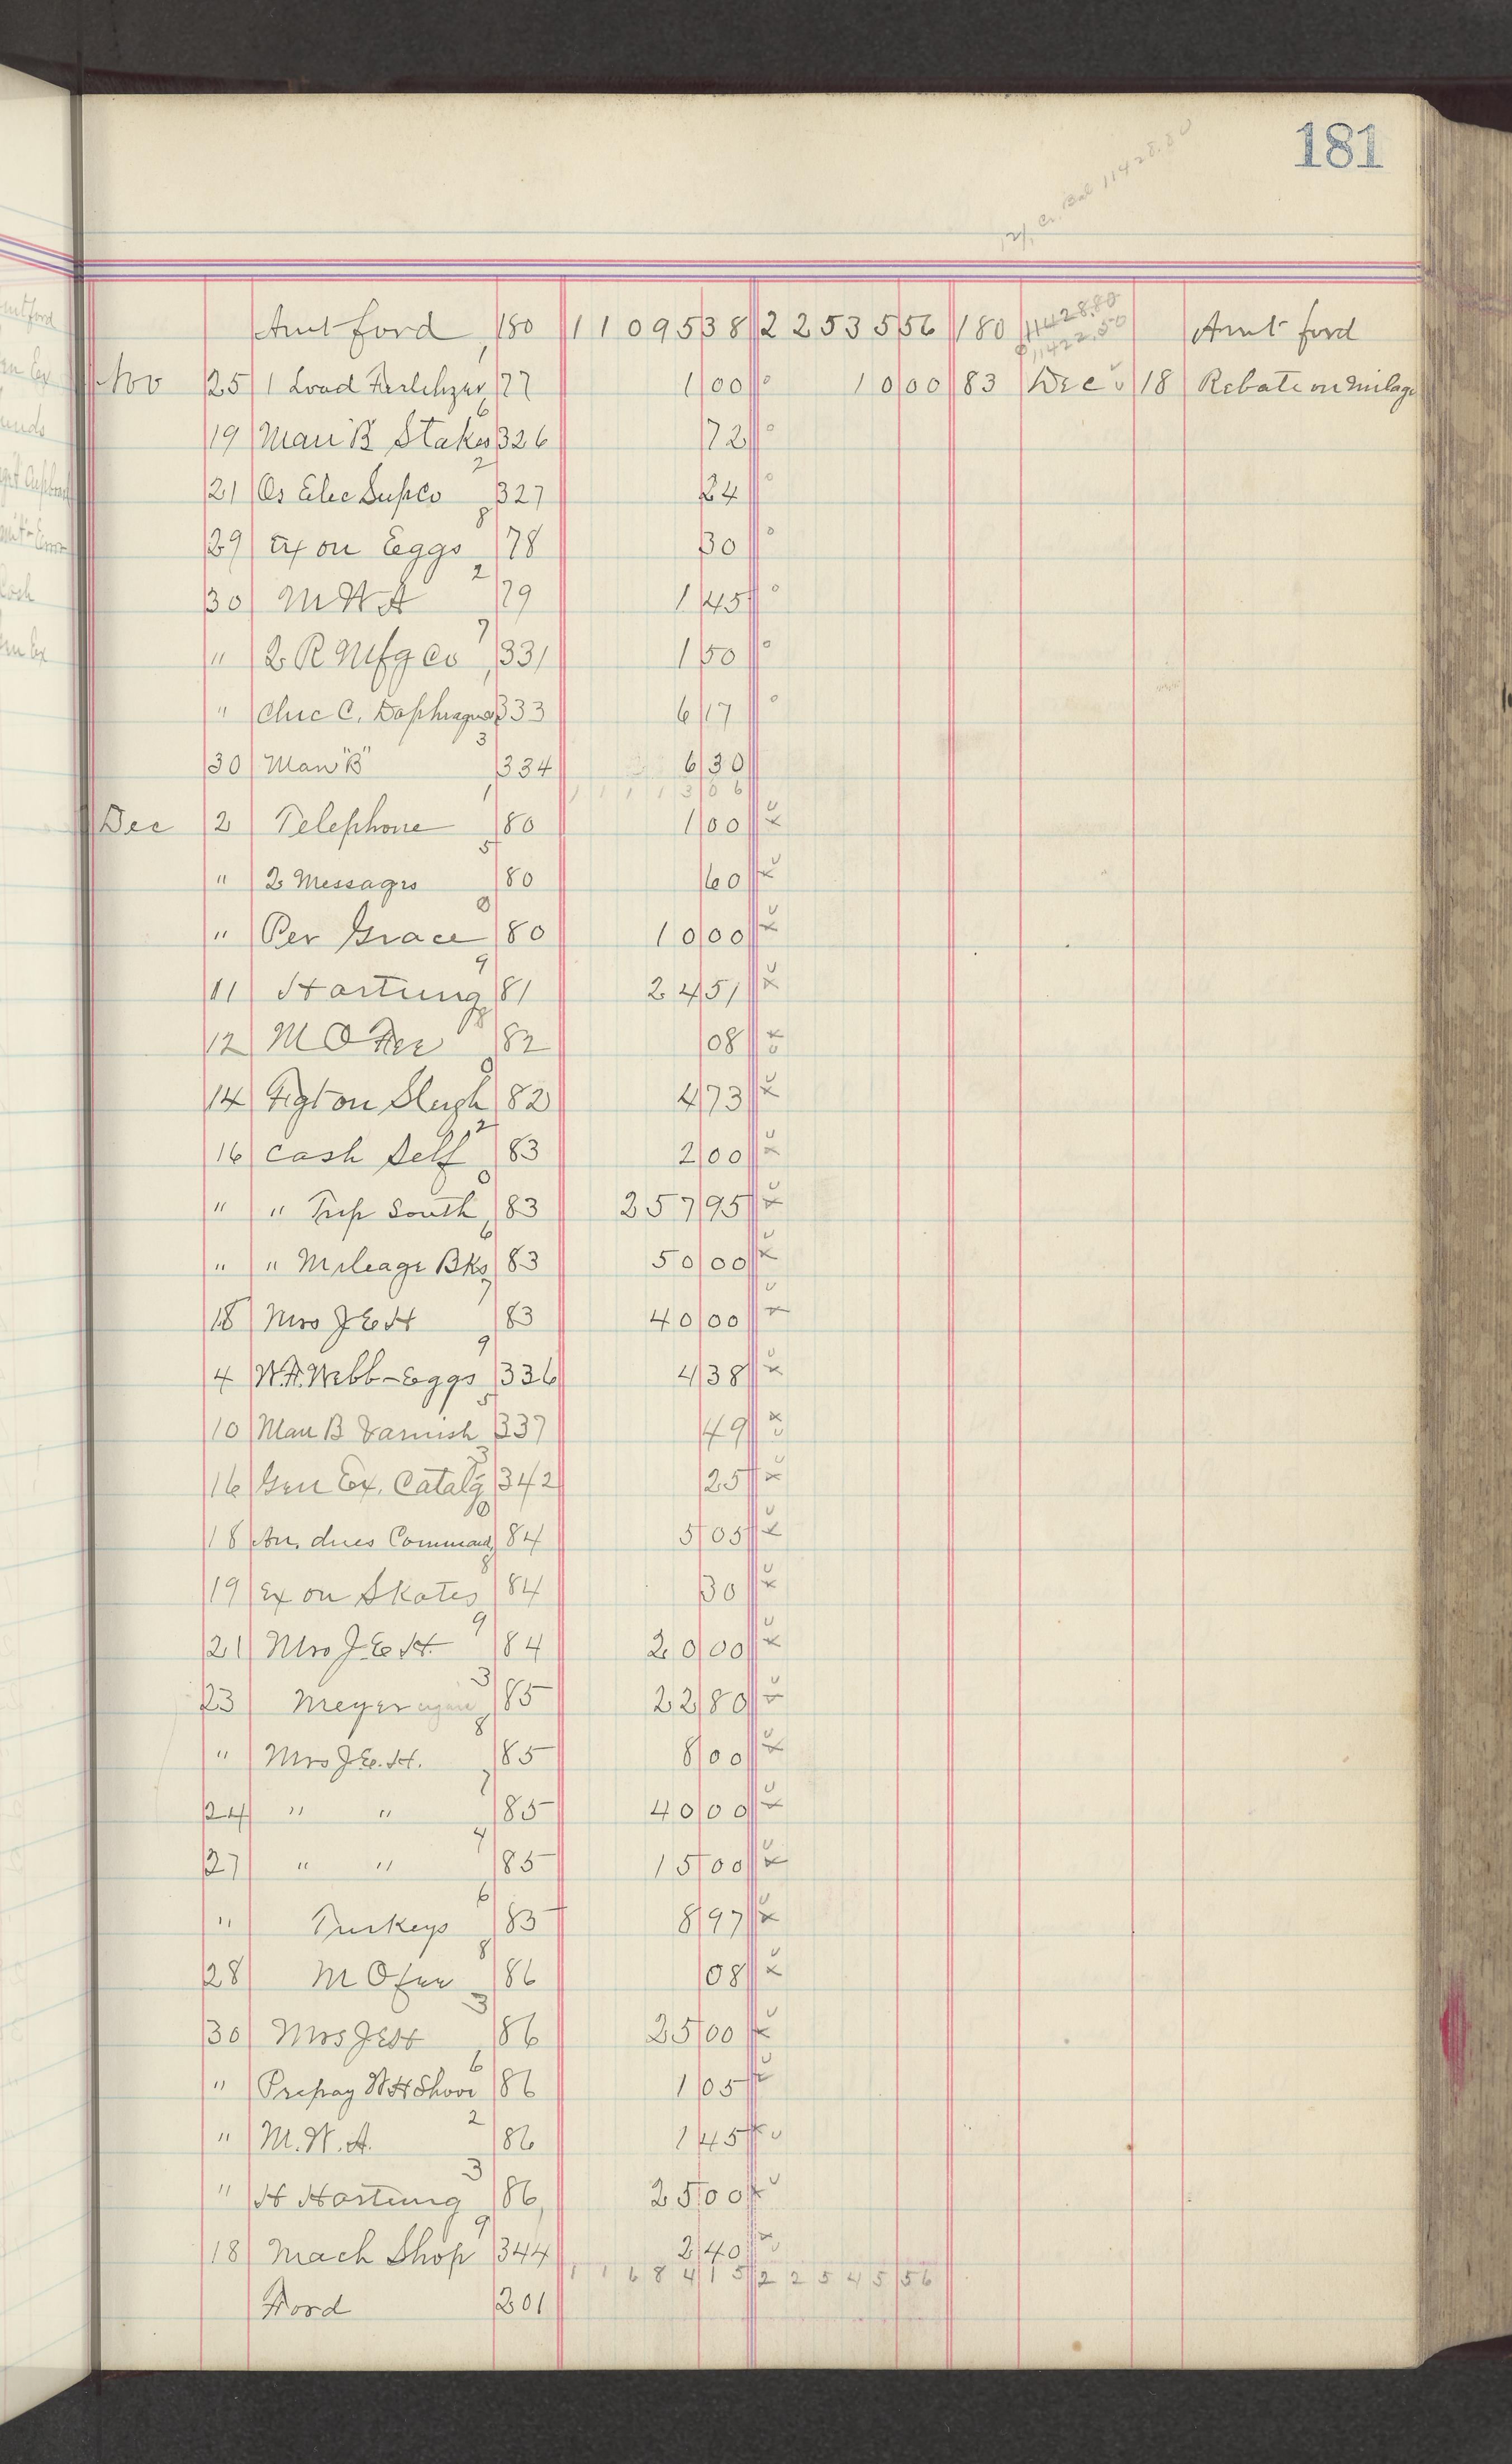 181
Cr. Bal 11428.80
Amt ford 180 11095 38 22535 56 180 11428.80 Amt ford
11422.50
Nov 25 1 Load Fertilizer 77 1 00 10 00 83 Dec 18 Rebate on Milage
19 Man B Stakes 326 72
21 Os Elec Sup Co 327 24
29 Ex on Eggs 78 30
30 M W A 79 1 45
" 2 R Mfg Co 331 1 50
" Chic C. Daphragms 333 6 17
30 Man "B" 334 6 30
11113 06
Dec 2 Telephone 80 1 00
" 2 Messages 80 60
" Per Grace 80 10 00
11 Hartung 81 24 51
12 M O Fee 82 08
14 Fgt on Sleigh 82 4 73
16 Cash Self 83 2 00
" " Trip South 83 257 95
" " Mileage Bks 83 50 00
18 Mrs J E H 83 40 00
4 W.H. Webb - Eggs 336 4 38
10 Man B Varnish 337 49
16 Gen Ex. Catalg 342 25
18 An. dues Command 84 5 05
19 Ex on Skates 84 30
21 Mrs J E H. 84 20 00
23 Meyer 85 22 80
" Mrs J E. H. 85 8 00
24 " " 85 40 00
27 " " 85 15 00
" Turkeys 85 8 97
28 M O fee 86 08
30 Mrs J E H 86 25 00
" Prepay W H Shove 86 1 05
" M. W. A. 86 1 45
" H Hartung 86 25 00
18 Mach Shop 344 2 40
11684 15 22545 56
Ford 201